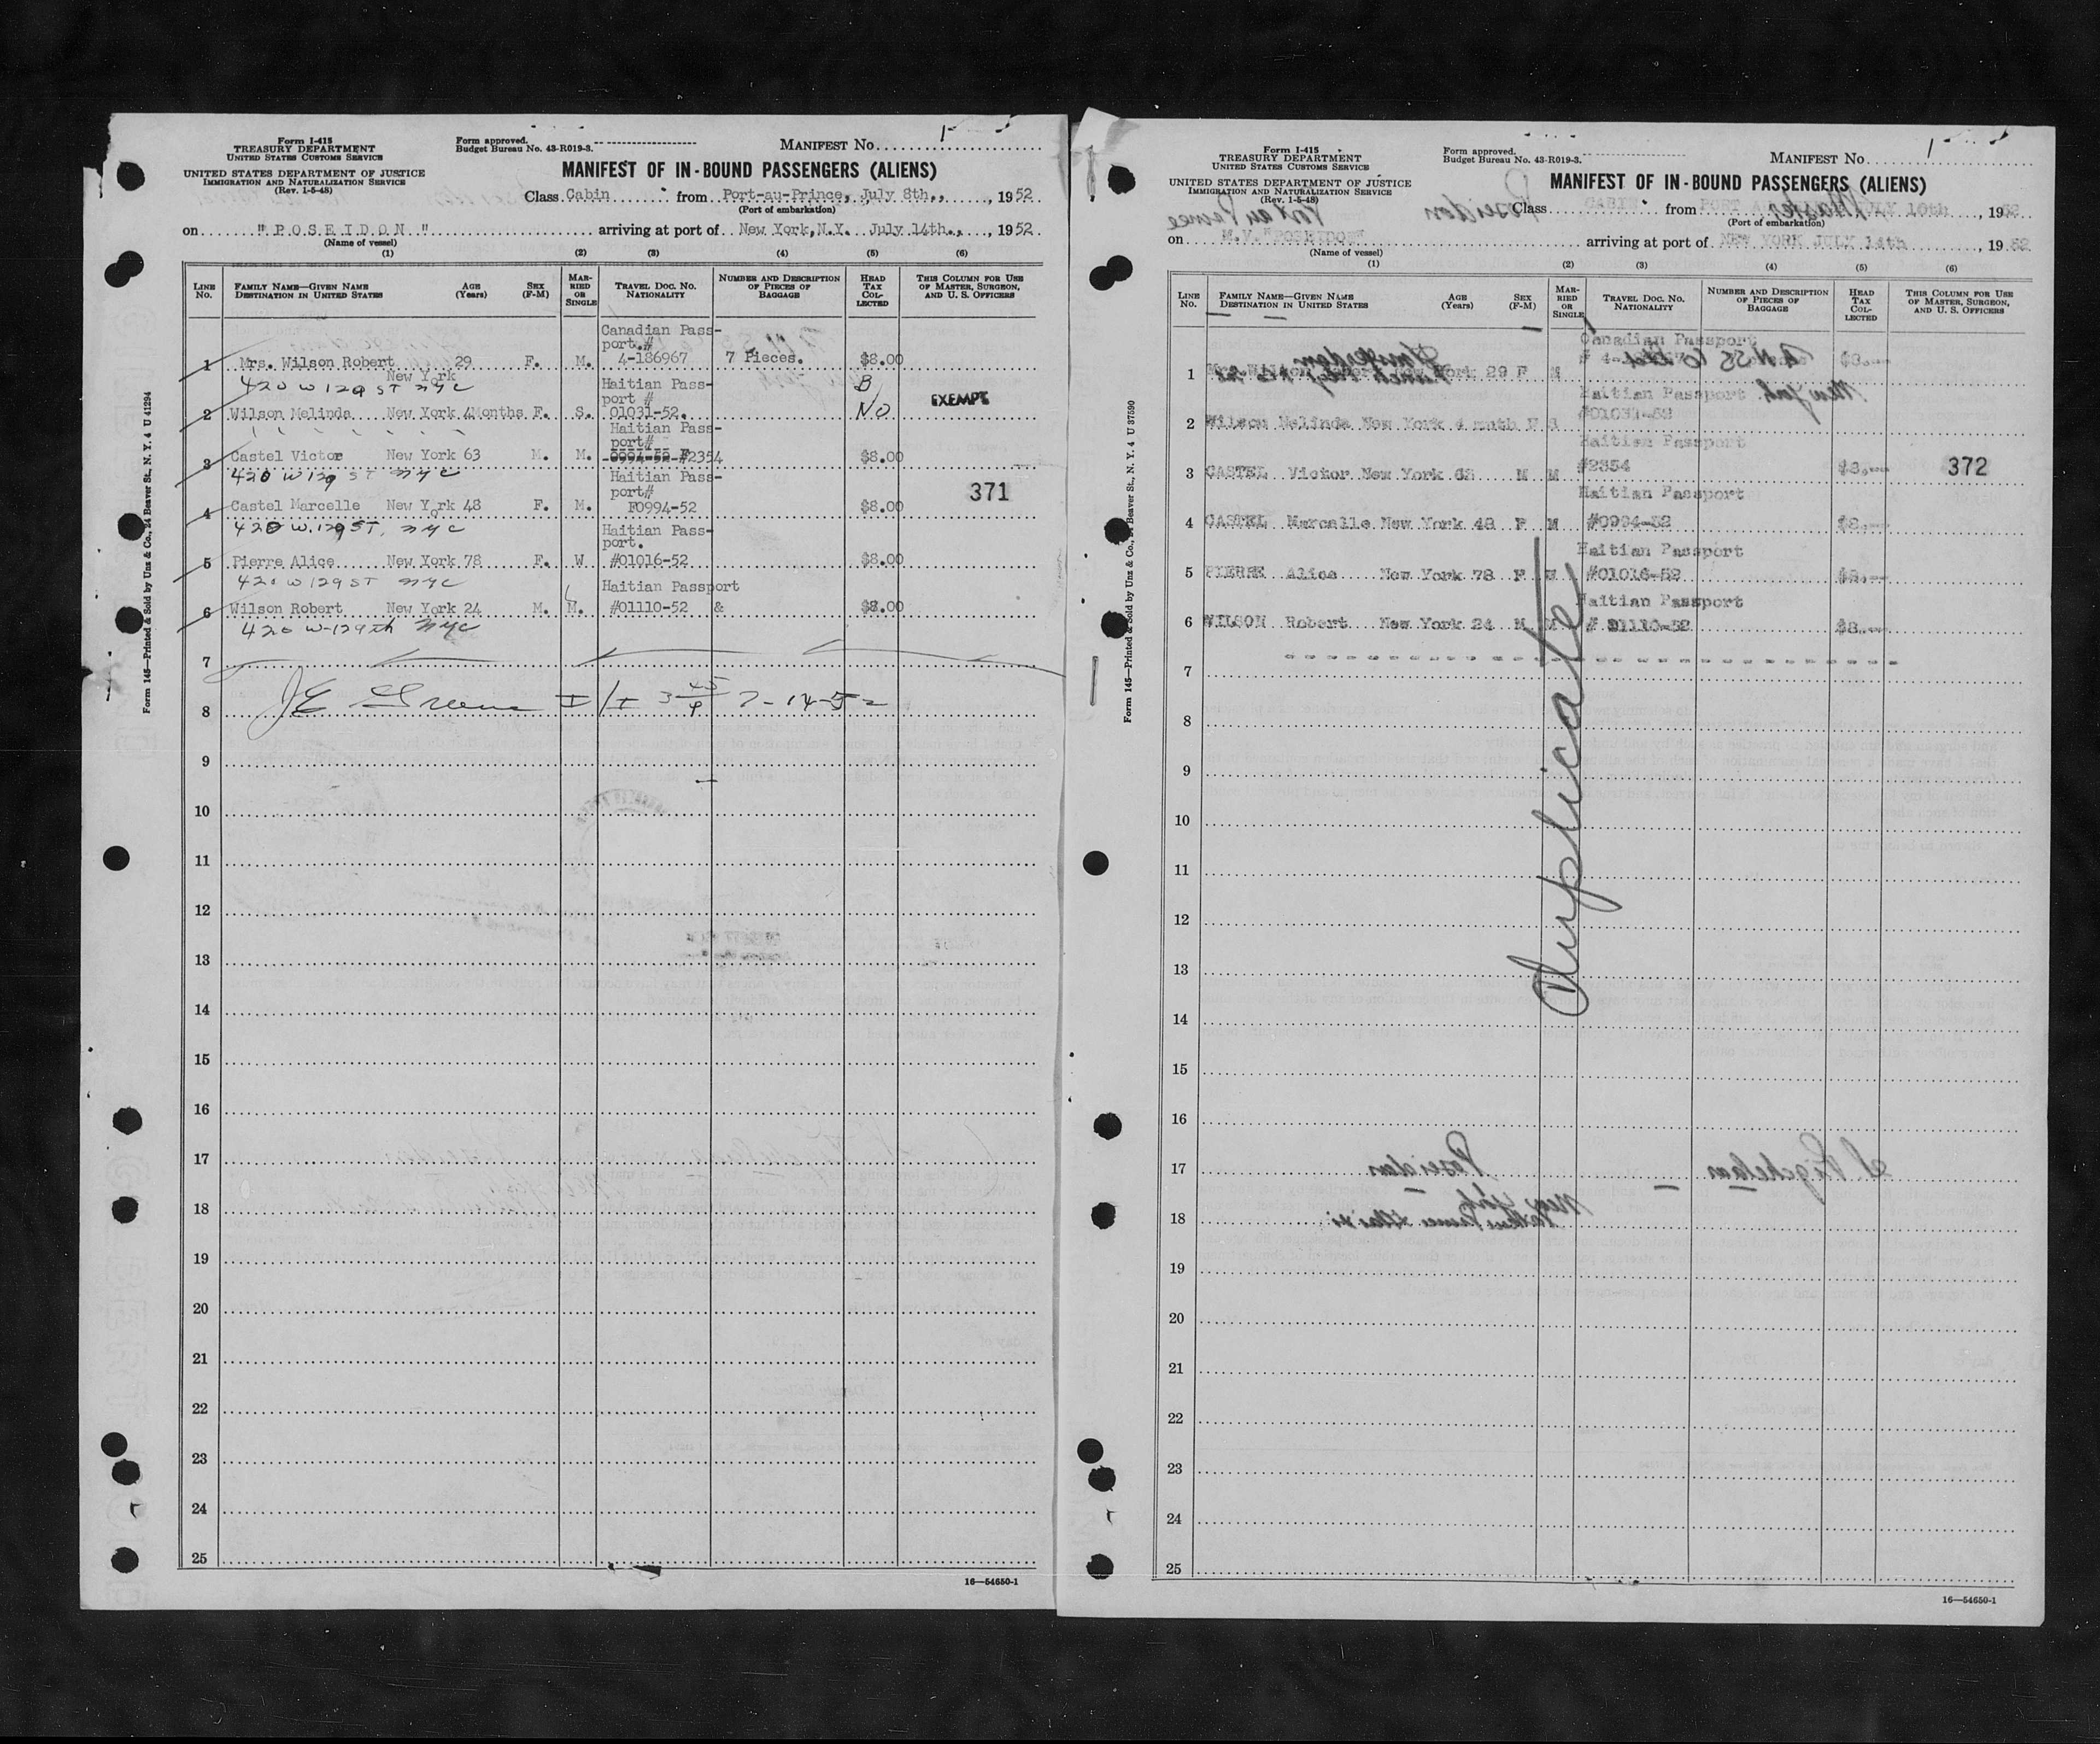 Form I-415
TREASURY DEPARTMENT
UNITED STATES CUSTOMS SERVICE
UNITED STATES DEPARTMENT OF JUSTICE
IMMIGRATION AND NATURALIZATION SERVICE
(Rev. 1-5-48)
Form approved.
Budget Bureau No. 43-R019-3.
MANIFEST No.
MANIFEST OF IN-BOUND PASSENGERS (ALIENS)
Class Cabin from Port-au-Prince, July 8th., 1952
(Port of embarkation)
on "POSEIDON" arriving at port of New York, N.Y. July 14th., 1952
(Name of vessel)
(1) (2) (3) (4) (5) (6)
LINE No. FAMILY NAME—GIVEN NAME DESTINATION IN UNITED STATES AGE (Years) SEX (F-M) MARRIED OR SINGLE TRAVEL DOC. NO. NATIONALITY NUMBER AND DESCRIPTION OF PIECES OF BAGGAGE HEAD TAX COLLECTED THIS COLUMN FOR USE OF MASTER, SURGEON, AND U. S. OFFICERS
Canadian Pass-
port.#
1 Mrs. Wilson Robert 29 F. M. 4-186967 7 Pieces. $8.00
New York
420 W 129 ST NYC
Haitian Pass-
port #
2 Wilson Melinda New York 4Months F. S. 01031-52. No EXEMPT
Haitian Pass-
port#
3 Castel Victor New York 63 M. M. #2354 $8.00
420 W 129 ST NYC
Haitian Pass-
port#
371
4 Castel Marcelle New York 48 F. M. F0994-52 $8.00
420 W. 129 ST. NYC
Haitian Pass-
port.
5 Pierre Alice New York 78 F. W #01016-52 $8.00
420 W 129 ST NYC
Haitian Passport
6 Wilson Robert New York 24 M. M. #01110-52 & $8.00
420 W-129th NYC
7
8 7-14-52
9
10
11
12
13
14
15
16
17
18
19
20
21
22
23
24
25
16—54650-1
Form 145—Printed & Sold by Unz & Co., 24 Beaver St., N. Y. 4 U 41294
Form I-415
TREASURY DEPARTMENT
UNITED STATES CUSTOMS SERVICE
UNITED STATES DEPARTMENT OF JUSTICE
IMMIGRATION AND NATURALIZATION SERVICE
(Rev. 1-5-48)
Form approved.
Budget Bureau No. 43-R019-3.
MANIFEST No.
MANIFEST OF IN-BOUND PASSENGERS (ALIENS)
Class CABIN from PORT JULY 10th, 1952
(Port of embarkation)
on M.V. "POSEIDON" arriving at port of NEW YORK JULY 14th, 1952
(Name of vessel)
(1) (2) (3) (4) (5) (6)
LINE No. FAMILY NAME—GIVEN NAME DESTINATION IN UNITED STATES AGE (Years) SEX (F-M) MARRIED OR SINGLE TRAVEL DOC. NO. NATIONALITY NUMBER AND DESCRIPTION OF PIECES OF BAGGAGE HEAD TAX COLLECTED THIS COLUMN FOR USE OF MASTER, SURGEON, AND U. S. OFFICERS
Canadian Passport
1 New York 29 F M $8.
Haitian Passport
2 Wilson Melinda New York 4 mnth F S #01031-52
Haitian Passport
3 CASTEL Victor New York 63 M M #2354 $8. 372
Haitian Passport
4 CASTEL Marcelle New York 48 F M #0994-52 $8.
Haitian Passport
5 PIERRE Alice New York 78 F W #01016-52 $8.
Haitian Passport
6 WILSON Robert New York 24 M M # 01110-52 $8.
7
8
9
10
11
12
13
14
15
16
17
18
19
20
21
22
23
24
25
Duplicate
16—54650-1
Form 145—Printed & Sold by Unz & Co., 24 Beaver St., N. Y. 4 U 37590